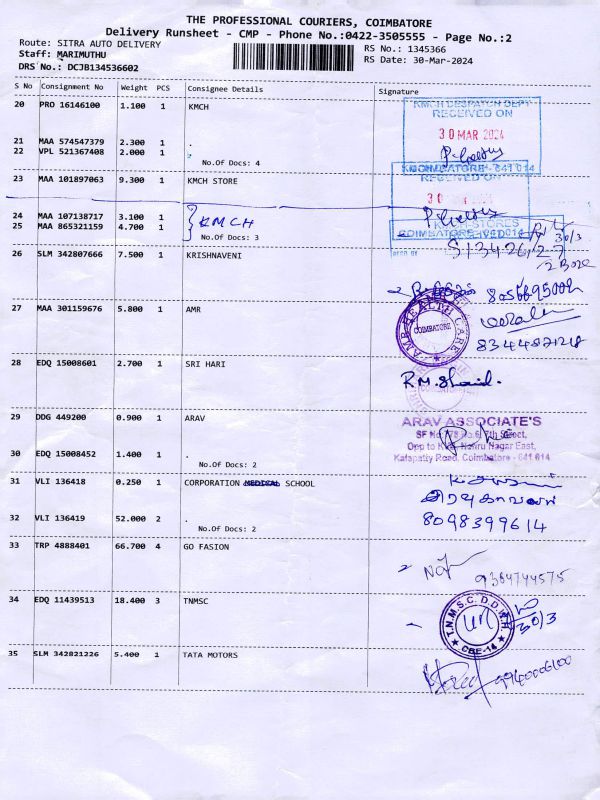 THE PROFESSIONAL COURIERS, COIMBATORE
Delivery Runsheet - CMP - Phone No.:0422-3505555 - Page No.:2
Route: SITRA AUTO DELIVERY
RS No.: 1345366
Staff: MARIMUTHU
RS Date: 30-Mar-2024
DRS No.: DCJB134536602
S No Consignment No Weight PCS Consignee Details Signature
20 PRO 16146100 1.100 1 KMCH
KMCH DESPATCH DEPT
RECEIVED ON
30 MAR 2024
21 MAA 574547379 2.300 1 .
22 VPL 521367408 2.000 1
No.Of Docs: 4
COIMBATORE - 641 014
23 MAA 101897063 9.300 1 KMCH STORE
RECEIVED ON
30
24 MAA 107138717 3.100 1 KMCH
25 MAA 865321159 4.700 1
No.Of Docs: 3
KMCH-STORES
30/3
26 SLM 342807666 7.500 1 KRISHNAVENI
27 MAA 301159676 5.800 1 AMR
AMR HEALTH CARE
COIMBATORE
28 EDQ 15008601 2.700 1 SRI HARI
29 DDG 449200 0.900 1 ARAV
ARAV ASSOCIATE'S
Nehru Nagar East,
Kalapatty Road, Coimbatore - 641 014
30 EDQ 15008452 1.400 1
No.Of Docs: 2
31 VLI 136418 0.250 1 CORPORATION MEDICAL SCHOOL
8098399614
32 VLI 136419 52.000 2 .
No.Of Docs: 2
33 TRP 4888401 66.700 4 GO FASION
9384744575
34 EDQ 11439513 18.400 3 TNMSC
T.N.M.S.C. D.D.W.H.
CBE-14
30/3
35 SLM 342821226 5.400 1 TATA MOTORS
9940006100